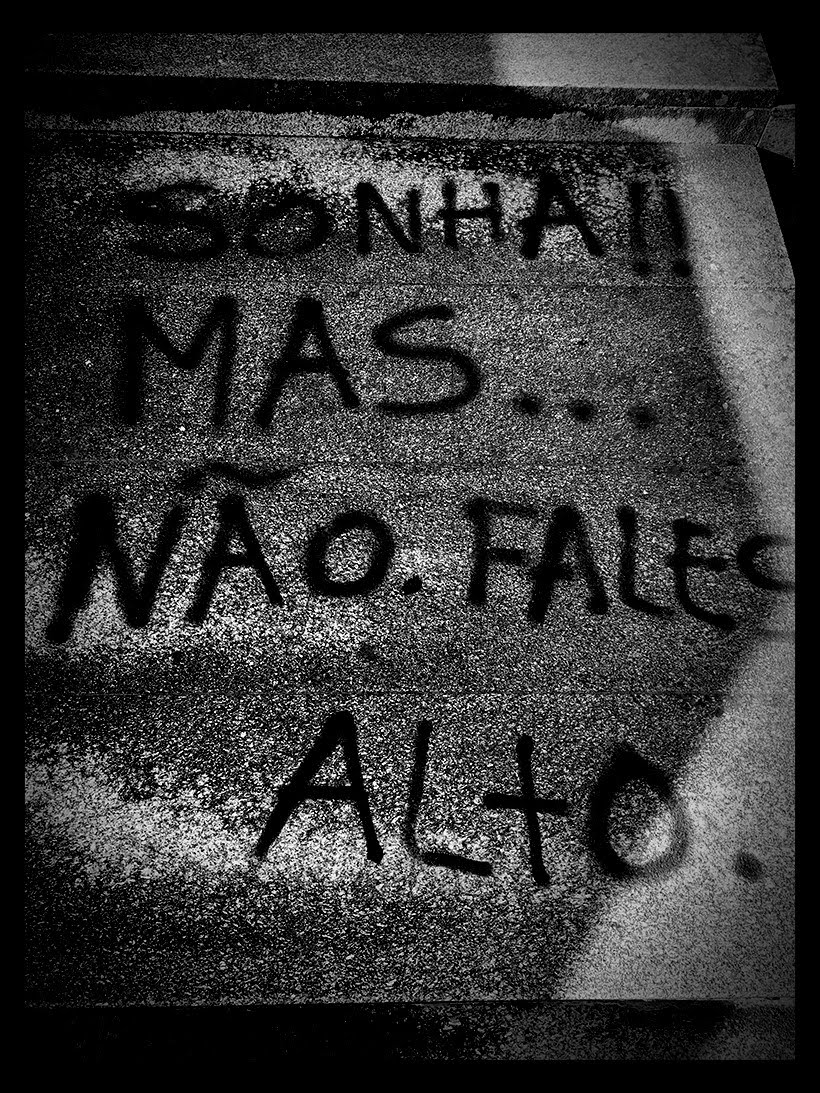 SONHA!!
MAS...
NÃO. FALEC
ALTO.